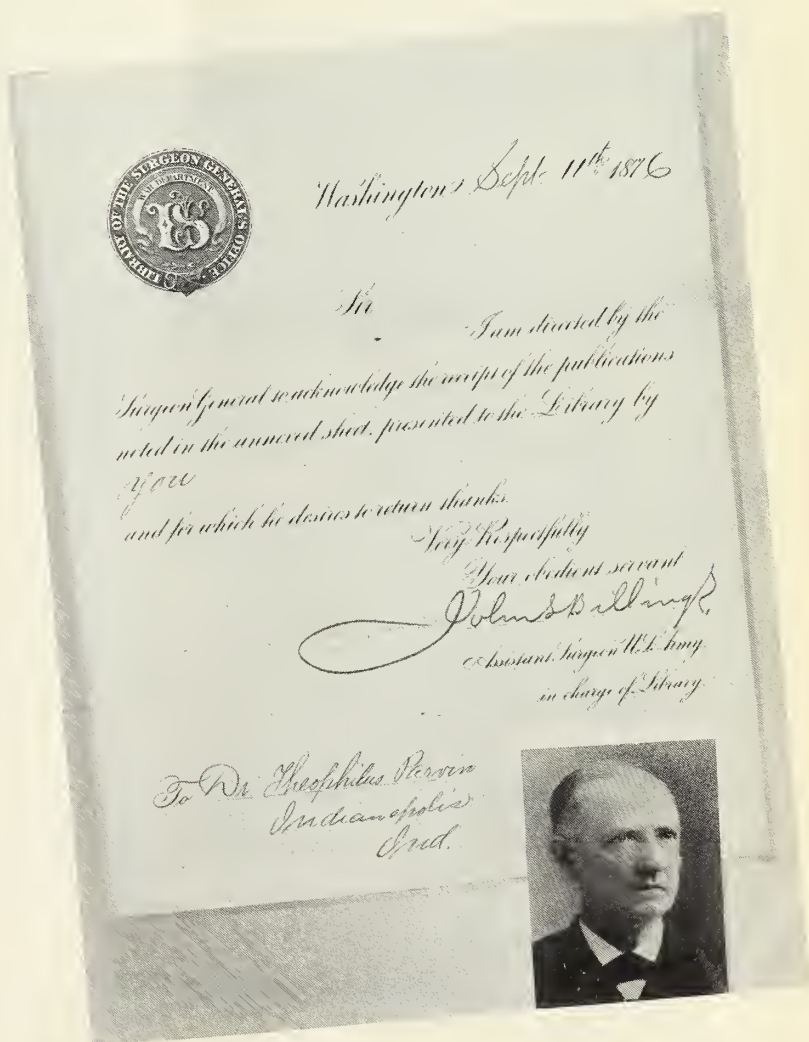 LIBRARY OF THE SURGEON GENERAL'S OFFICE
WAR DEPARTMENT
Washington, Sept. 11th 1876
Sir
I am directed by the
Surgeon General to acknowledge the receipt of the publications
noted in the annexed sheet, presented to the Library by
you
and for which he desires to return thanks.
Very Respectfully
Your obedient servant
John S Billings
Assistant Surgeon U.S. Army
in charge of Library.
To Dr. Theophilus Parvin
Indianapolis
Ind.